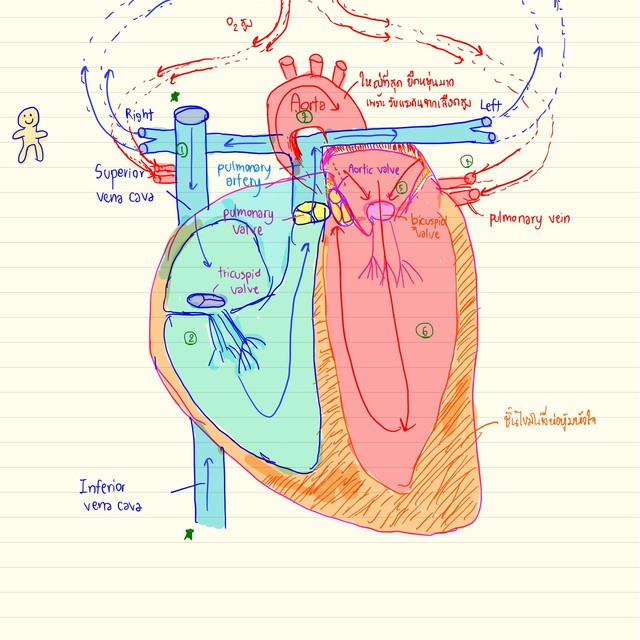 O₂ สูง
ใหญ่ที่สุด ยืดหยุ่นมาก
เพราะ รับแรงดันจากเลือดสูง
Aorta
7
Right
Left
1
Superior
vena cava
pulmonary
artery
Aortic valve
5
pulmonary vein
pulmonary
valve
bicuspid
valve
tricuspid
valve
2
6
Inferior
vena cava